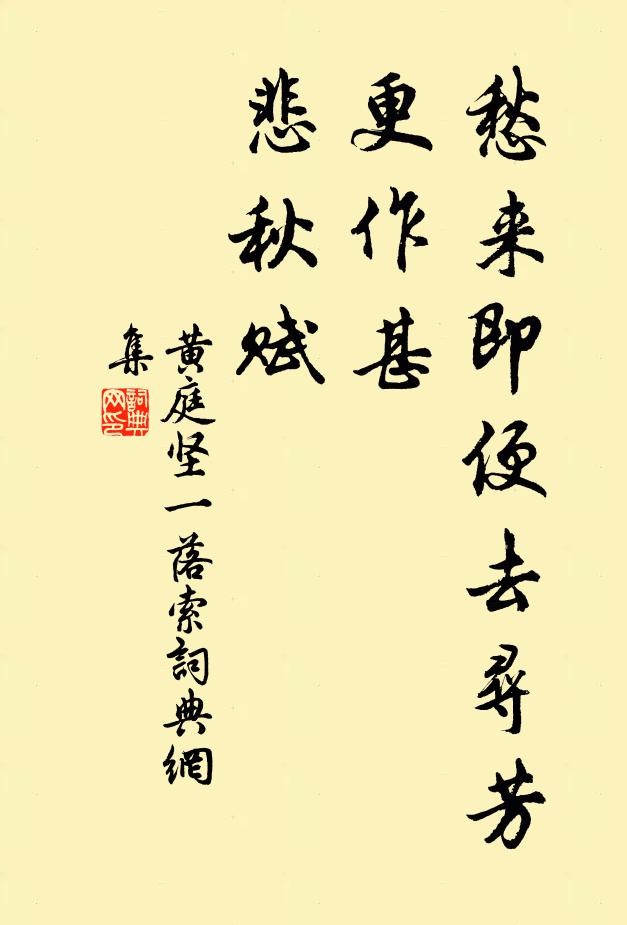 愁来即便去尋芳
更作甚
悲秋赋
黄庭坚一落索詞典網
集
詞典網印